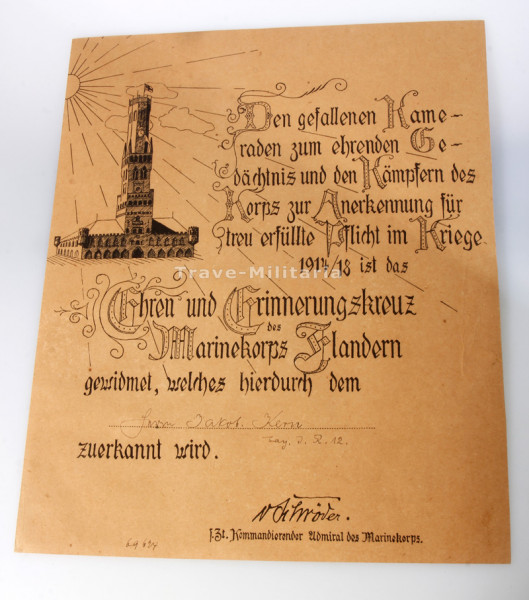 Den gefallenen Kame-
raden zum ehrenden Ge-
dächtnis und den Kämpfern des
Korps zur Anerkennung für
treu erfüllte Pflicht im Kriege
1914/18 ist das
Trave-Militaria
Ehren und Erinnerungskreuz
des
Marinekorps Flandern
gewidmet, welches hierdurch dem
Herrn Jakob Kern
zuerkannt wird.
v Schröder.
z. Zt. Kommandierender Admiral des Marinekorps.